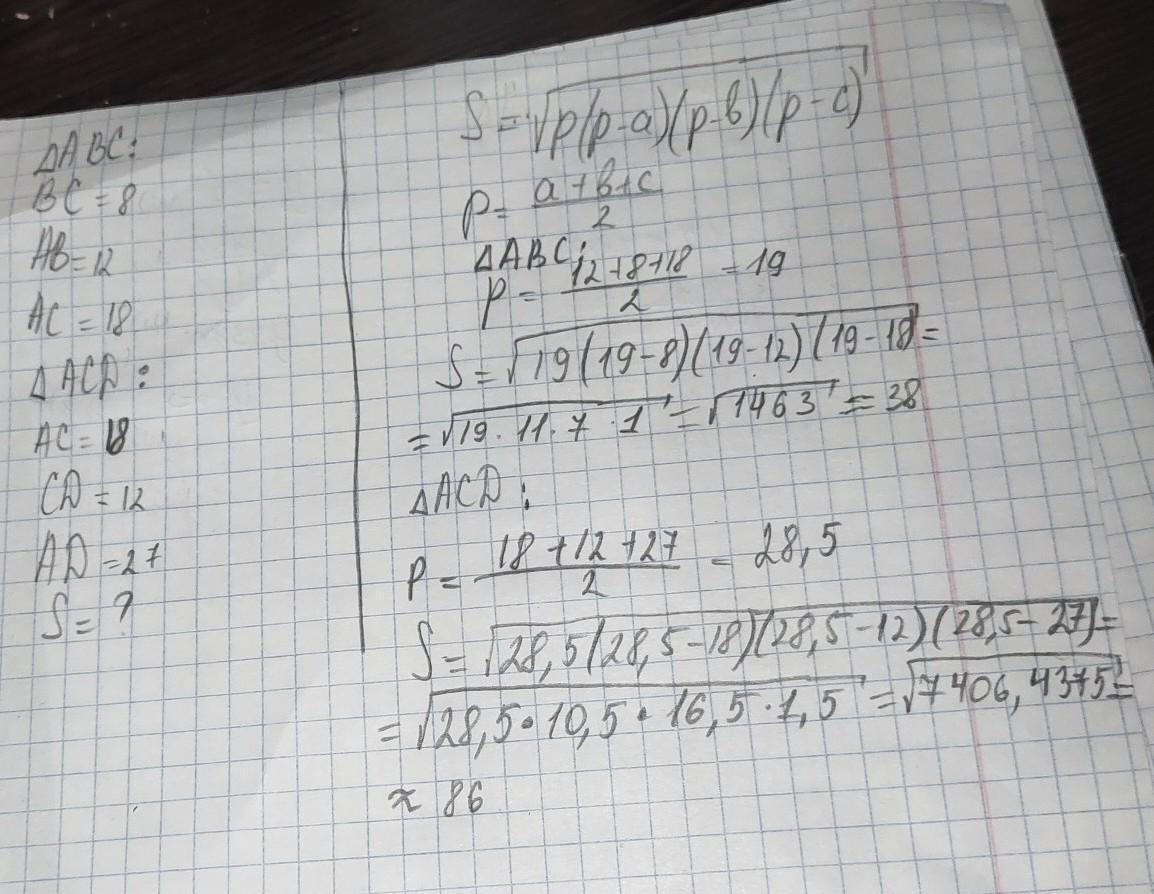 ΔABC:
BC = 8
AB = 12
AC = 18
ΔACD:
AC = 18
CD = 12
AD = 27
S = ?
S = √p(p-a)(p-b)(p-c)
p = a+b+c / 2
ΔABC:
p = 12+8+18 / 2 = 19
S = √19(19-8)(19-12)(19-18) =
= √19·11·7·1 = √1463 = 38
ΔACD:
p = 18+12+27 / 2 = 28,5
S = √28,5(28,5-18)(28,5-12)(28,5-27) =
= √28,5·10,5·16,5·1,5 = √7406,4375 =
≈ 86